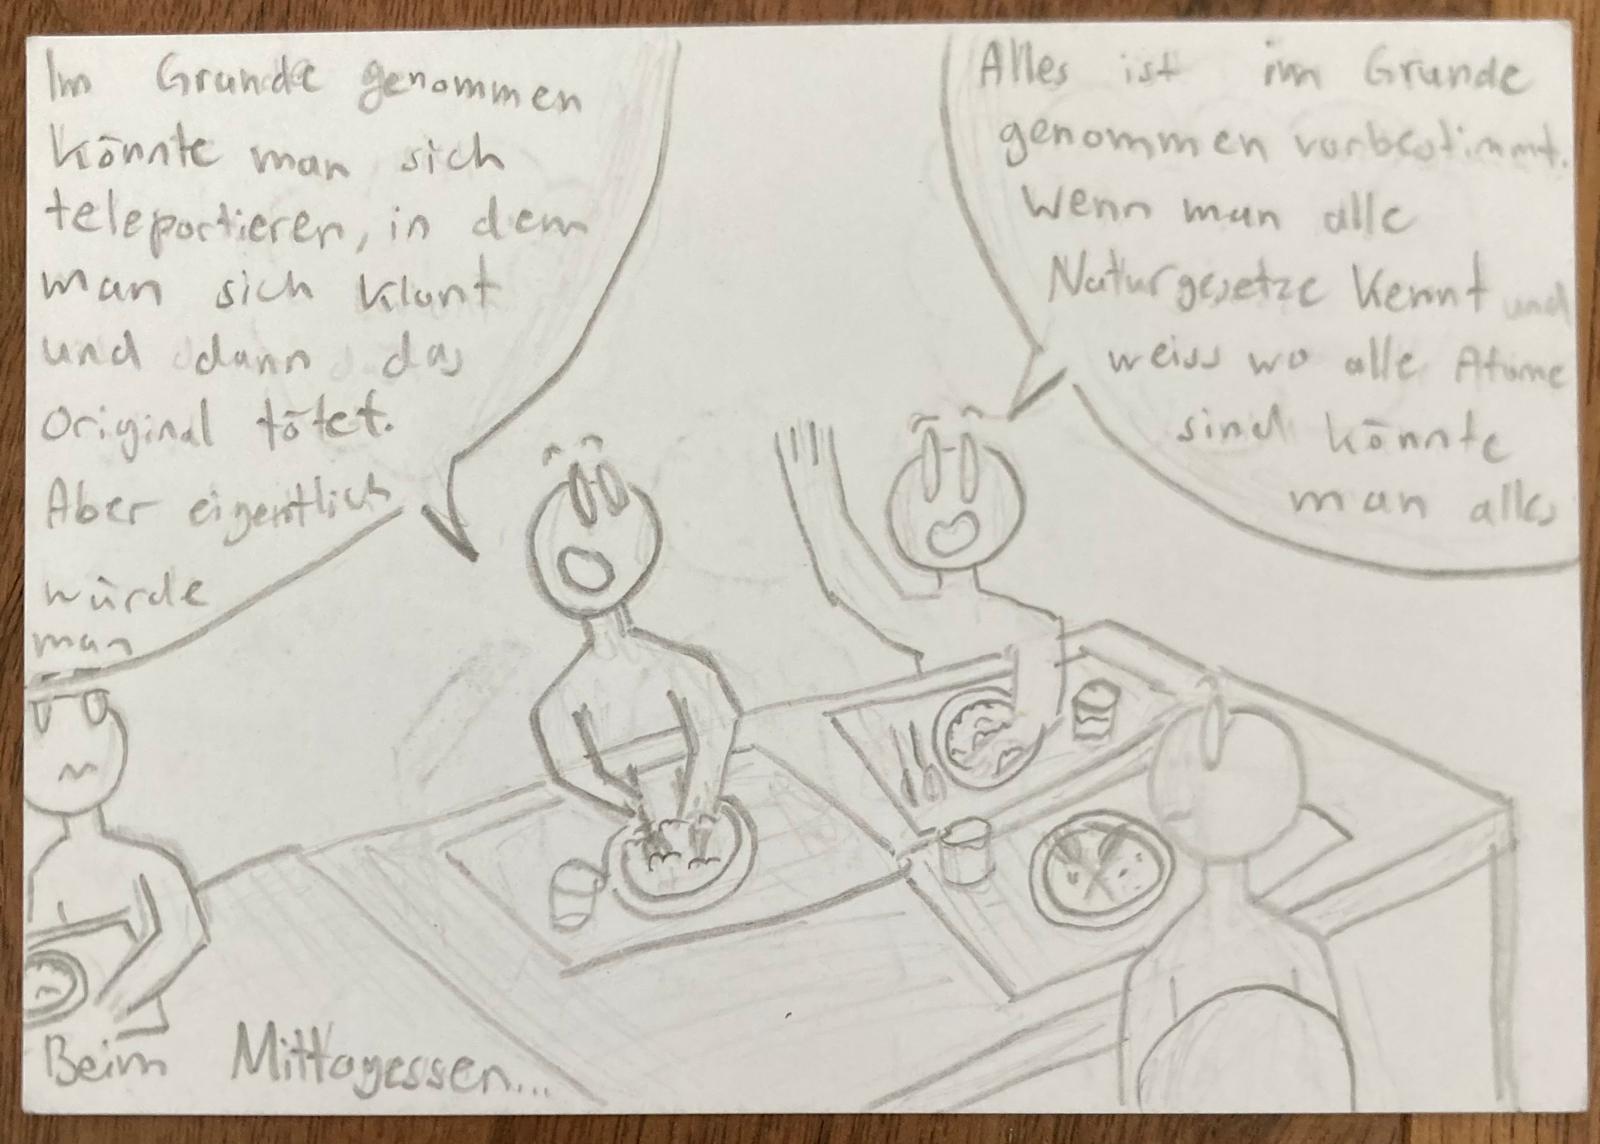 Im Grunde genommen
könnte man sich
teleportieren, in dem
man sich klont
und dann das
Original tötet.
Aber eigentlich
würde
man
Alles ist im Grunde
genommen vorbestimmt.
Wenn man alle
Naturgesetze kennt und
weiss wo alle Atome
sind könnte
man alles
Beim Mittagessen...